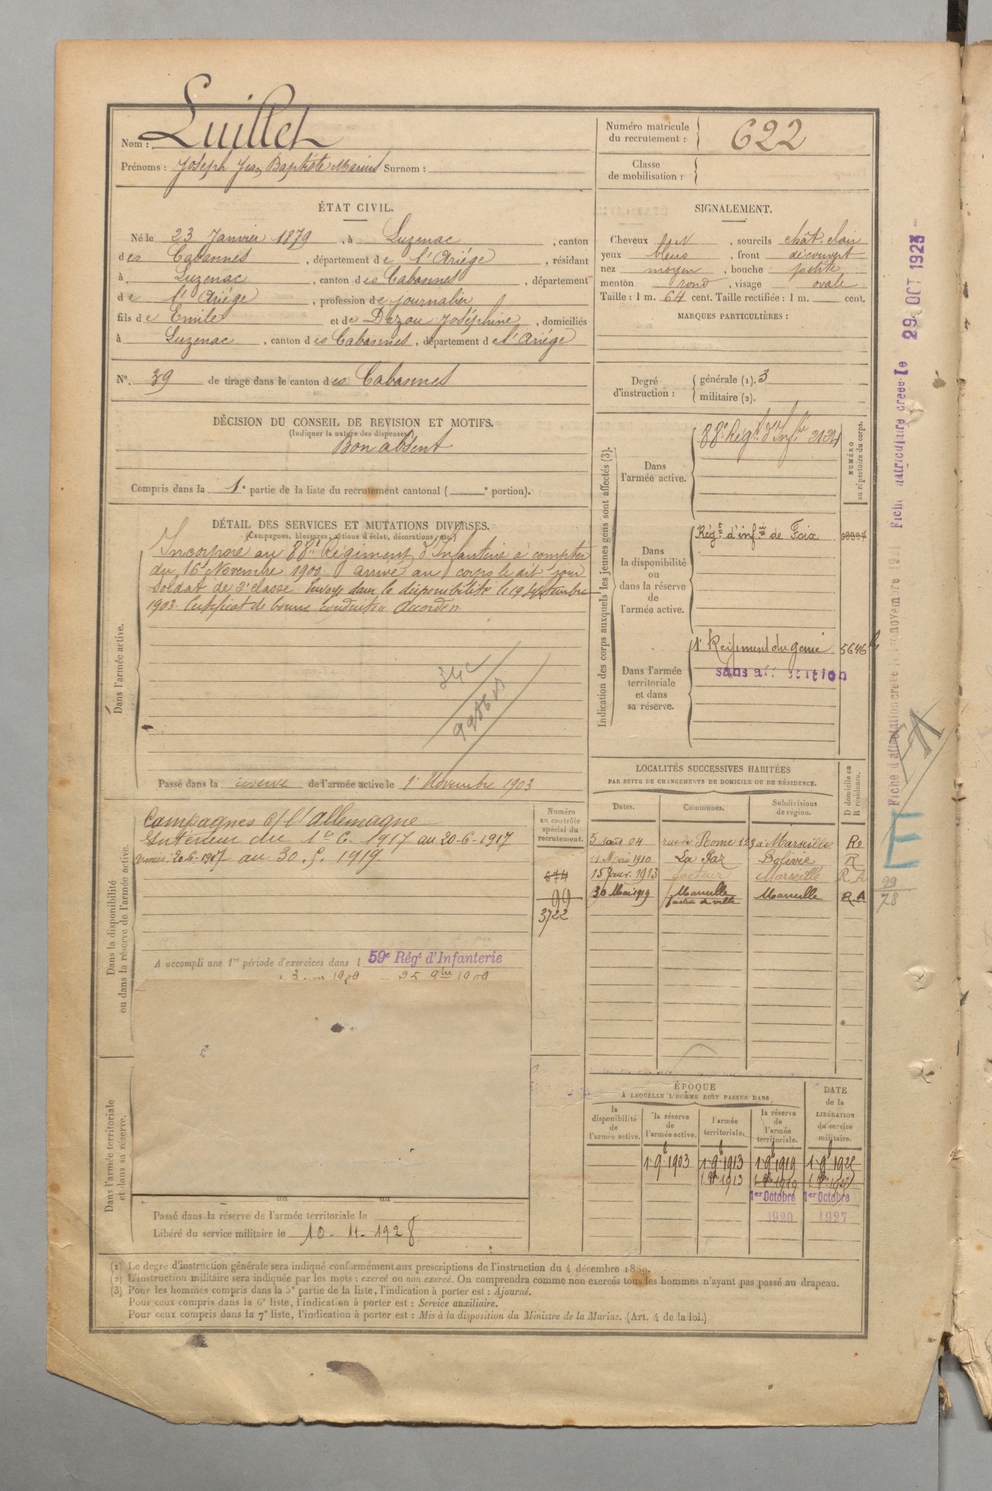 Nom : Luillet
Prénoms : Joseph Jean Baptiste Marius Surnom :
Numéro matricule du recrutement : 622
Classe de mobilisation :
ÉTAT CIVIL.
Né le 23 Janvier 1879, à Luzenac, canton
des Cabannes, département de l'Ariége, résidant
à Luzenac, canton des Cabannes, département
de l'Ariége, profession de journalier
fils de Emile et de Dezou Joséphine, domiciliés
à Luzenac, canton des Cabannes, département de l'Ariége
N° 39 de tirage dans le canton des Cabannes
SIGNALEMENT.
Cheveux , sourcils chât. clair
yeux bleus, front découvert
nez moyen, bouche petite
menton rond, visage ovale
Taille : 1 m. 64 cent. Taille rectifiée : 1 m. cent.
MARQUES PARTICULIÈRES :
Degré d'instruction : générale (1). 3
militaire (2).
DÉCISION DU CONSEIL DE REVISION ET MOTIFS.
(Indiquer la nature des dispenses)
Bon absent
Compris dans la 1e partie de la liste du recrutement cantonal ( e portion).
DÉTAIL DES SERVICES ET MUTATIONS DIVERSES.
(Campagnes, blessures, actions d'éclat, décorations, etc.)
Dans l'armée active.
Incorporé au 88e Régiment d'Infanterie à compter
du 16 Novembre 1900 arrivé au corps le dit jour
soldat de 2e classe. Envoyé dans la disponibilité le 19 Septembre
1903. Certificat de bonne conduite Accordé
Passé dans la réserve de l'armée active le 1er Novembre 1903
Indication des corps auxquels les jeunes gens sont affectés (3).
Dans l'armée active.
88e Régt d'Infie
NUMÉRO au répertoire du corps.
Dans la disponibilité ou dans la réserve de l'armée active.
Régt d'infie de Foix
Dans l'armée territoriale et dans sa réserve.
1er Régiment du génie 5646
sans affectation
Dans la disponibilité ou dans la réserve de l'armée active.
Campagnes C/ l'Allemagne
Intérieur du 1er 6. 1917 au 20-6-1917
20-6-1917 au 30. 1919
Numéro au contrôle spécial du recrutement.
99
3722
A accompli une 1re période d'exercices dans l 59e Régt d'Infanterie
LOCALITÉS SUCCESSIVES HABITÉES
PAR SUITE DE CHANGEMENTS DE DOMICILE OU DE RÉSIDENCE.
Dates. Communes. Subdivisions de région. D domicile ou R résidence.
5 août 04 rue de Rome 123 à Marseille Re
Mai 1910 La Paz Bolivie R
15 Janv. 1913 Marseille R
30 Mai 1919 Marseille Marseille R.A
Dans l'armée territoriale et dans sa réserve.
ÉPOQUE
À LAQUELLE L'HOMME DOIT PASSER DANS
la disponibilité de l'armée active.
la réserve de l'armée active.
l'armée territoriale.
la réserve de l'armée territoriale.
DATE de la LIBÉRATION du service militaire.
1er Octobre 1er Octobre
1920 1927
Passé dans la réserve de l'armée territoriale le
Libéré du service militaire le 10-11-1928
(1) Le degré d'instruction générale sera indiqué conformément aux prescriptions de l'instruction du 4 décembre
(2) L'instruction militaire sera indiquée par les mots : exercé ou non exercé. On comprendra comme non exercés tous les hommes n'ayant pas passé au drapeau.
(3) Pour les hommes compris dans la 5e partie de la liste, l'indication à porter est : Ajourné.
Pour ceux compris dans la 6e liste, l'indication à porter est : Service auxiliaire.
Pour ceux compris dans la 7e liste, l'indication à porter est : Mis à la disposition du Ministre de la Marine. (Art. 4 de la loi.)
29 OCT 1923
99
78